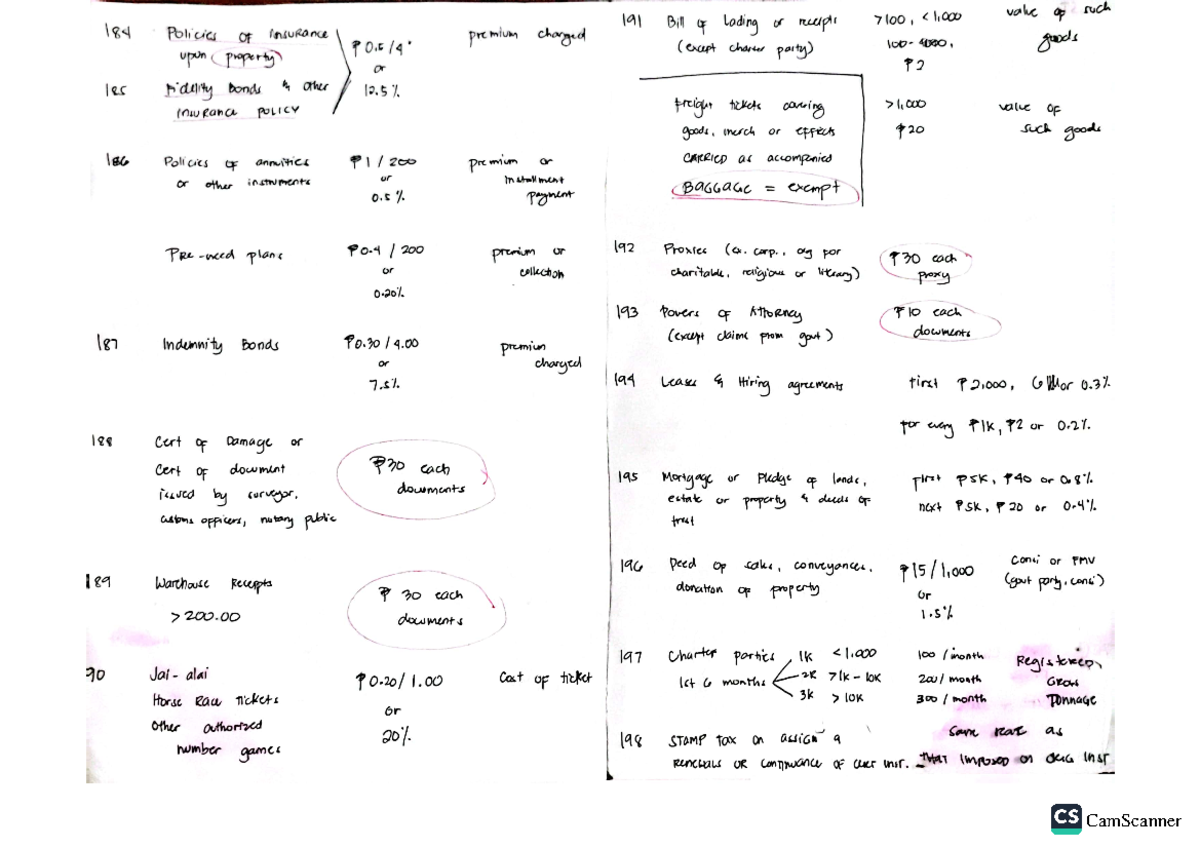 184 Policies of Insurance upon property
₱0.5/4 or 12.5%
premium charged
185 Fidelity Bonds & other
INSURANCE POLICY
186 Policies of annuities
or other instruments
₱1 / 200
or
0.5%
premium or
installment
payment
Pre-need plans
₱0.4 / 200
or
0.20%
premium or
collection
187 Indemnity Bonds
₱0.30/4.00
or
7.5%
premium
charged
188 Cert of Damage or
Cert of document
issued by surveyor,
customs officers, notary public
₱30 each
documents
189 Warehouse Receipts
>200.00
₱ 30 each
documents
90 Jai-alai
Horse Race Tickets
Other authorized
number games
₱0.20/1.00
or
20%
Cost of ticket
191 Bill of Lading or receipts
(except charter party)
>100, <1,000
₱2
value of such
goods
Freight tickets covering
goods, merch or effects
CARRIED as accompanied
BAGGAGE = exempt
>1,000
₱20
value of
such goods
192 Proxies (ex. corp., org for
charitable, religious or literary)
₱30 each
proxy
193 Powers of Attorney
(except claims from govt)
₱10 each
documents
194 Leases & Hiring agreements
first ₱2,000, or 0.3%
for every ₱1k, ₱2 or 0.2%
195 Mortgage or Pledge of lands,
estate or property & deeds of
trust
first ₱5K, ₱40 or 0.8%
next ₱5K, ₱20 or 0.4%
196 Deed of sales, conveyances,
donation of property
₱15/1,000
or
1.5%
Consi or FMV
(govt party, consi)
197 Charter parties
1st 6 months
1K <1,000 100/month
2K >1K-10K 200/month
3K >10K 300/month
Registered,
Gross
Tonnage
198 STAMP Tax on assign &
RENEWALS OR Continuance of cert inst.
same rate as
THAT imposed on orig inst
CS CamScanner